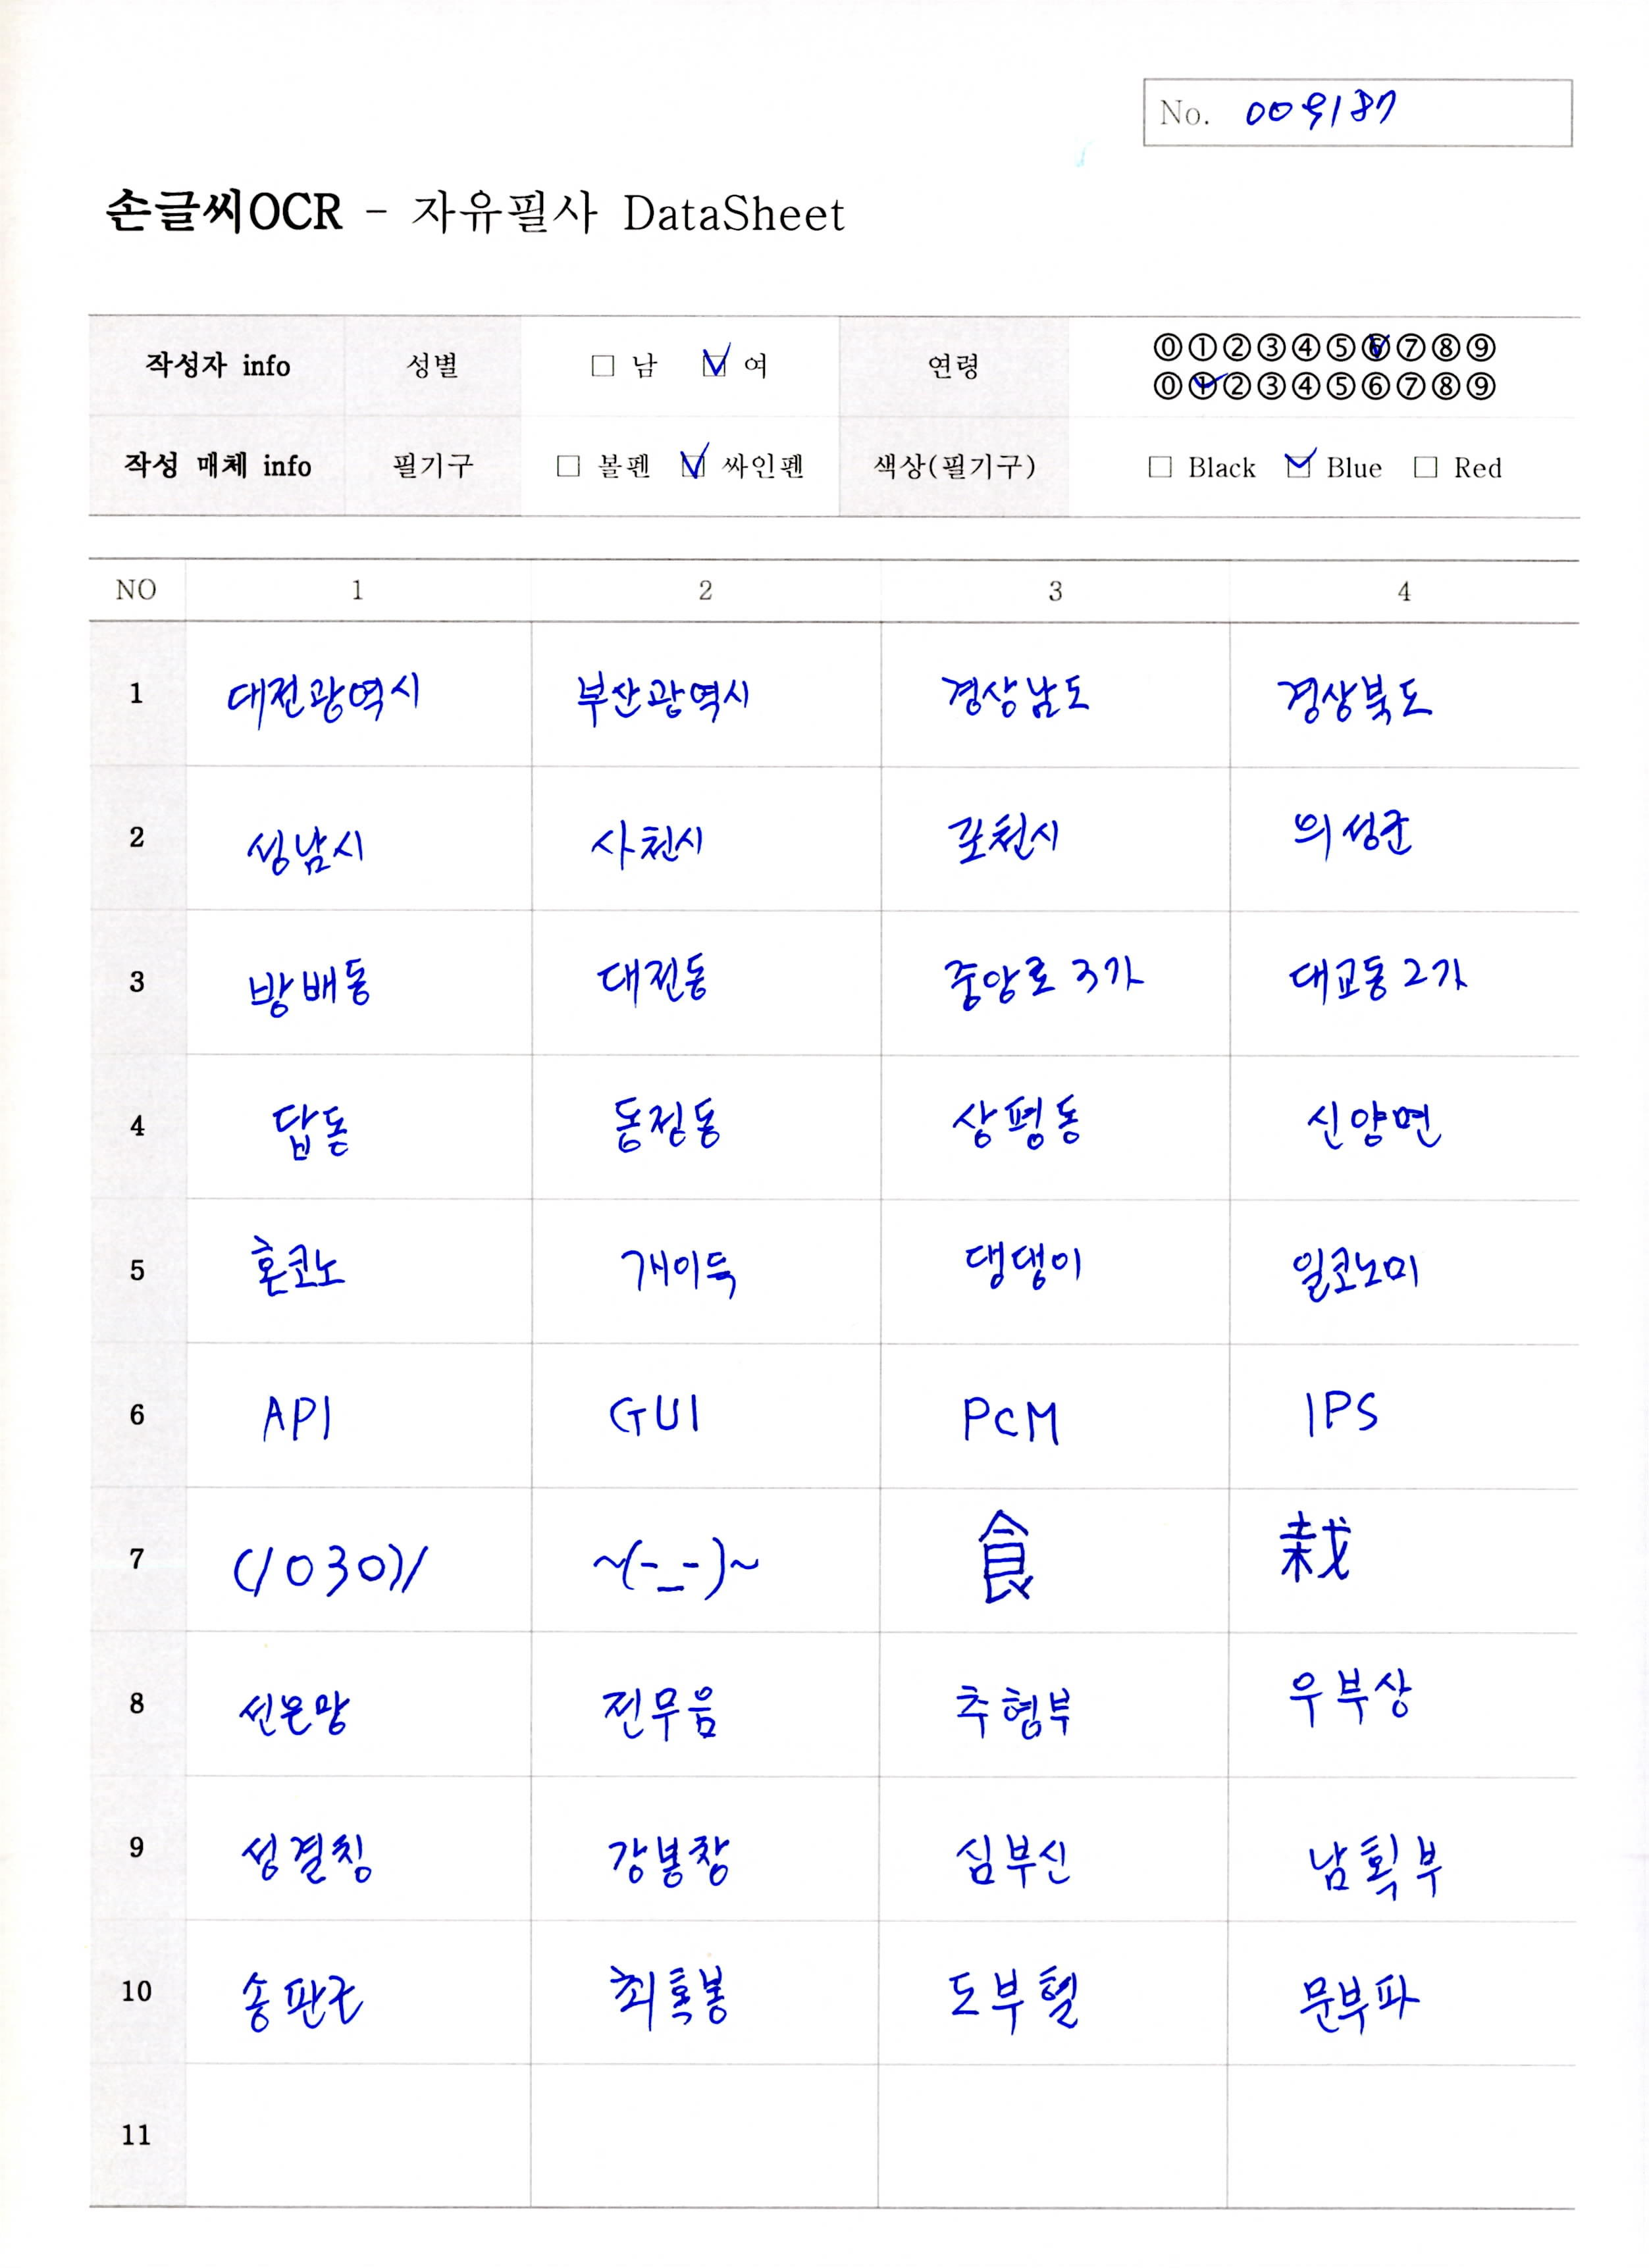 No. 009187
손글씨OCR - 자유필사 DataSheet
작성자 info 성별 □ 남 ☑ 여 연령 ⓪①②③④⑤⑥⑦⑧⑨
⓪①②③④⑤⑥⑦⑧⑨
작성 매체 info 필기구 □ 볼펜 ☑ 싸인펜 색상(필기구) □ Black ☑ Blue □ Red
NO 1 2 3 4
1 대전광역시 부산광역시 경상남도 경상북도
2 성남시 사천시 포천시 의성군
3 방배동 대전동 중앙로3가 대교동2가
4 답돋 동정동 상평동 신양면
5 혼코노 개이득 댕댕이 일코노미
6 API GUI PCM IPS
7 (/030)/ ~(-_-)~ 食 栽
8 선온망 전무음 추형부 우부상
9 성결칭 강봉창 심부신 남획부
10 송판근 최혹봉 도부헬 문부파
11